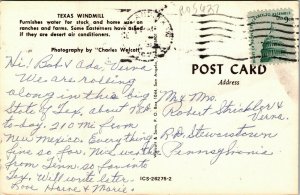 TEXAS WINDMILL
Furnishes water for stock and home use on
ranches and farms. Some Easterners have asked
if they are desert air conditioners.
Photography by "Charles Wolcott"
POST CARD
Address
Hi! Bob & Ada - Verna
We are rolling
along in this big
State of Tex, about
today. 210 mi from
New Mexico. Everything
fine so far. Nice weather
from Tenn. so far into
Tex. Will write later
Howard & Marie.
Mr & Mrs.
Robert Strickler &
Verna.
Stewartstown
Pennsylvania
ICS-26276-2